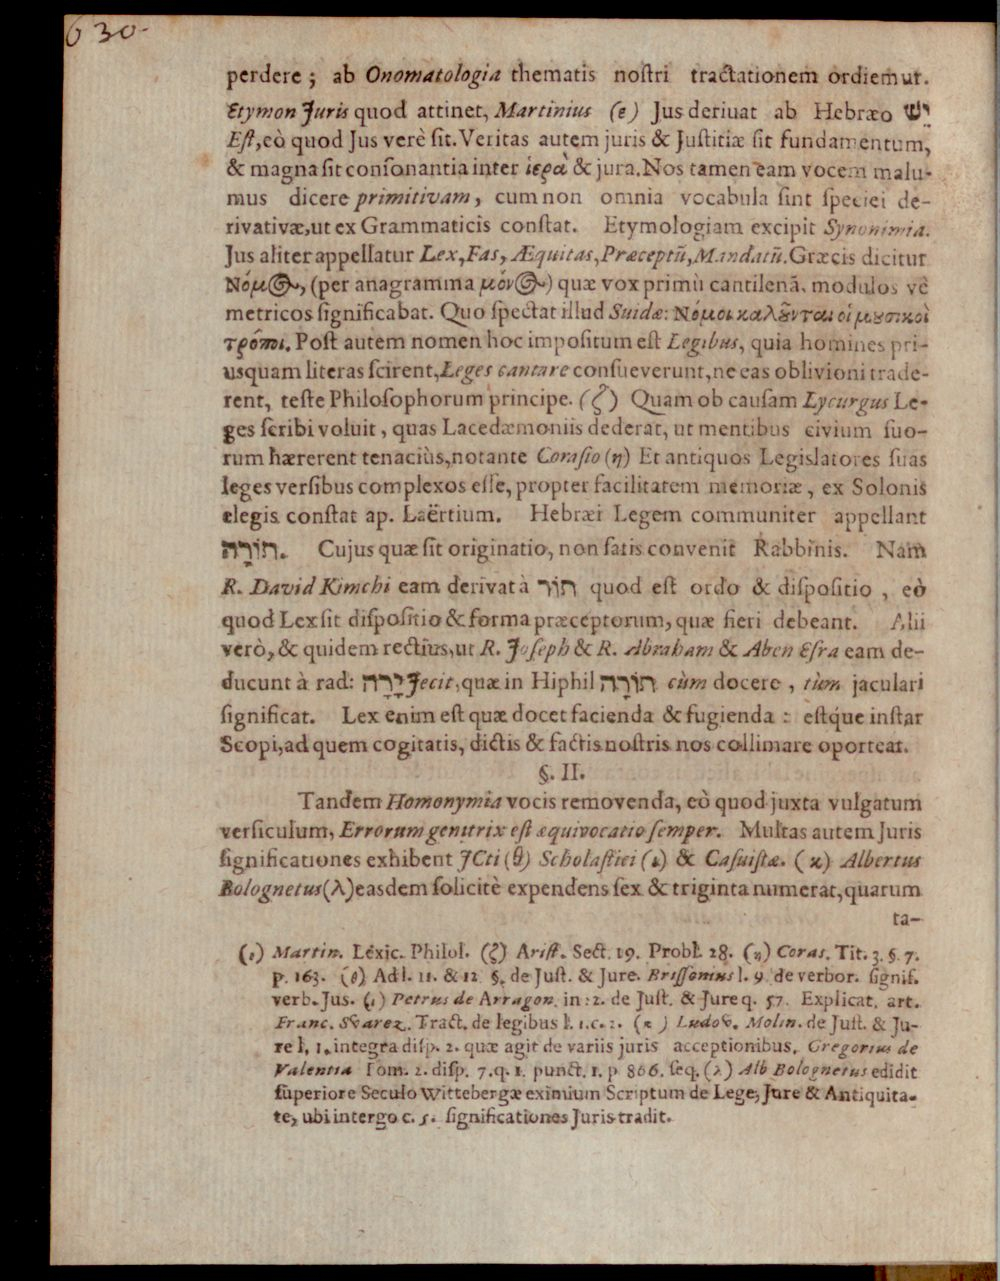 630-
perdere; ab Onomatologia thematis nostri tractationem ordiemur.
Etymon Juris quod attinet, Martinius (ε) Jus derivat ab Hebræo יֵשׁ
Est, eò quod Jus verè sit. Veritas autem juris & Justitiæ sit fundamentum,
& magna sit consonantia inter ἱερὰ & jura. Nos tamen eam vocem malu-
mus dicere primitivam, cum non omnia vocabula sint speciei de-
rivativæ, ut ex Grammaticis constat. Etymologiam excipit Synonimia.
Jus aliter appellatur Lex, Fas, Æquitas, Præceptũ, Mandatũ. Græcis dicitur
Νόμος, (per anagramma μόνος) quæ vox primù cantilenã, modulos vè
metricos significabat. Quo spectat illud Suidæ: Νόμοι καλοῦνται οἱ μουσικοὶ
τρόποι. Post autem nomen hoc impositum est Legibus, quia homines pri-
usquam literas scirent, Leges cantare consueverunt, ne eas oblivioni trade-
rent, teste Philosophorum principe. (ζ) Quam ob causam Lycurgus Le-
ges scribi voluit, quas Lacedæmoniis dederat, ut mentibus civium suo-
rum hærerent tenaciùs, notante Corasio (η) Et antiquos Legislatores suas
leges versibus complexos esse, propter facilitatem memoriæ, ex Solonis
elegis constat ap. Laërtium. Hebræi Legem communiter appellant
תּוֹרָה. Cujus quæ sit originatio, non satis convenit Rabbinis. Nam
R. David Kimchi eam derivat à תּוֹר quod est ordo & dispositio, eò
quod Lex sit dispositio & forma præceptorum, quæ fieri debeant. Alii
verò, & quidem rectiùs, ut R. Joseph & R. Abraham & Aben Esra eam de-
ducunt à rad: יָרָה Jecit, quæ in Hiphil הוֹרָה cùm docere, tùm jaculari
significat. Lex enim est quæ docet facienda & fugienda: estq́ue instar
Scopi, ad quem cogitatis, dictis & factis nostris nos collimare oporteat.
§. II.
Tandem Homonymia vocis removenda, eò quod juxta vulgatum
versiculum, Errorum genitrix est æquivocatio semper. Multas autem Juris
significationes exhibent JCti (θ) Scholastici (ι) & Casuistæ. (κ) Albertus
Bolognetus (λ) easdem solicitè expendens sex & triginta numerat, quarum
ta-
(ε) Martin. Lexic. Philol. (ζ) Arist. Sect. 19. Probl. 28. (η) Coras. Tit. 3. §. 7.
p. 163. (θ) Ad l. 11. & 12 §. de Just. & Jure. Brissonius l. 9 de verbor. signif.
verb. Jus. (ι) Petrus de Arragon. in :2. de Just. & Jure q. 57. Explicat. art.
Franc. Svarez. Tract. de legibus l. 1. c. 2. (κ) Ludov. Molin. de Just. & Ju-
re l. 1. integra disp. 2. quæ agit de variis juris acceptionibus. Gregorius de
Valentia Tom. 2. disp. 7. q. 1. punct. 1. p 806. seq. (λ) Alb Bolognetus edidit
superiore Seculo Wittebergæ eximium Scriptum de Lege, Jure & Antiquita-
te, ubi intergo c. 5. significationes Juris tradit.